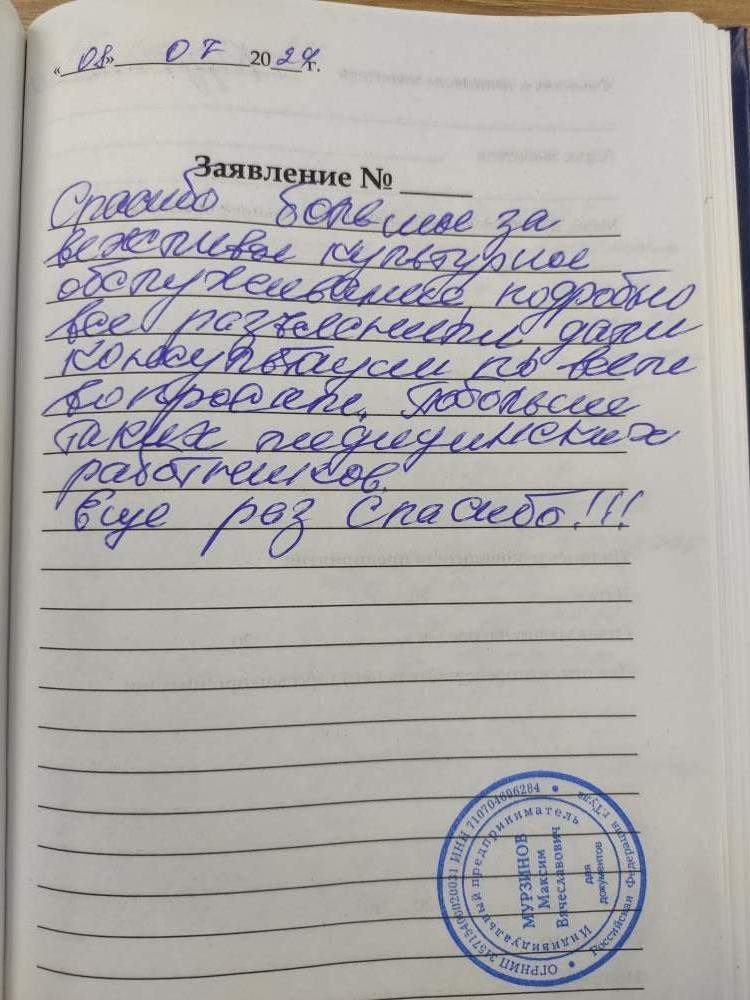 « 08 » 07 2024 г.
Заявление № ____
Спасибо большое за
вежливое культурное
обслуживание, подробно
все разъяснили дали
консультацию по всем
вопросам. Побольше
таких медицинских
работников.
Еще раз Спасибо!!!
Российская Федерация г.Тула
ОГРНИП 315715400020031 ИНН 710704696284
Индивидуальный предприниматель
МУРЗИНОВ
Максим
Вячеславович
для
документов